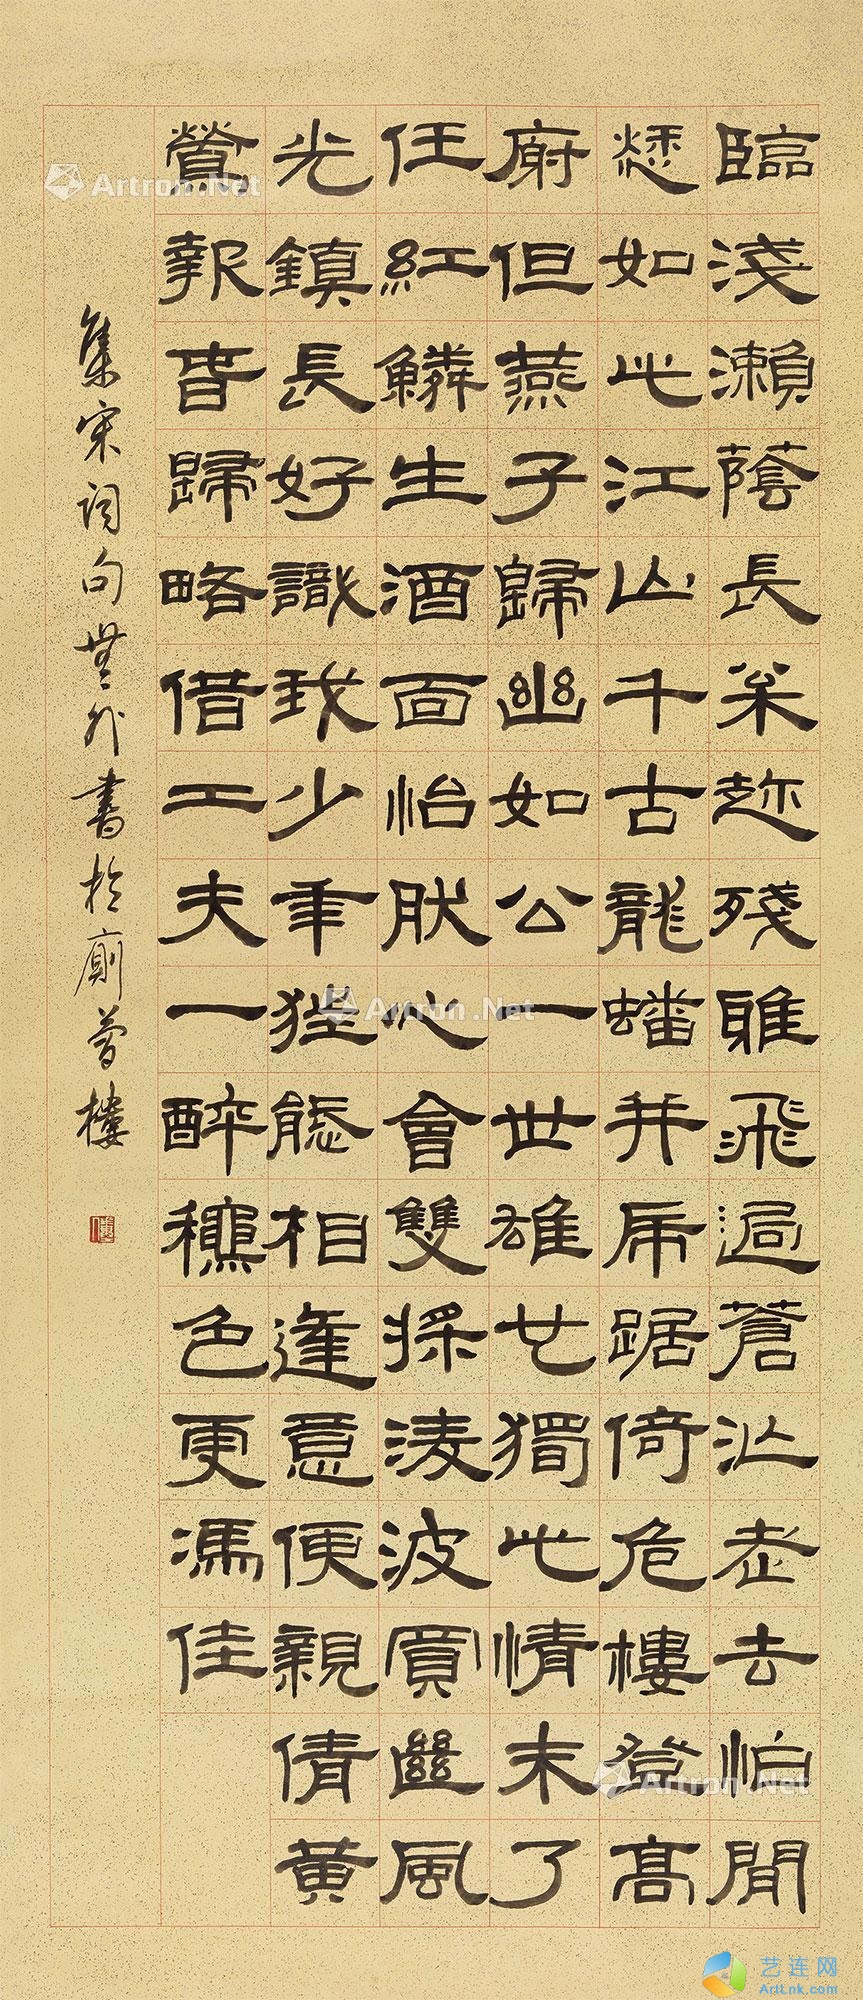 臨淺瀨蔭長趁殘雅飛過蒼茫老去怕聞
愁如此江山千古龍蟠并虎踞倚危樓登高
但燕子歸幽如公一世雄獨此情未了
任紅鱗生酒面怡然心會雙槳凌波買斷風
光鎮長好識我少年狂態相逢意便親倩黃
鶯報春歸略借工夫一醉龝色更馮佳
集宋詞句無外書於樓
Artron.Net
Artron.Net
Artron.Net
艺连网
ArtLnk.com